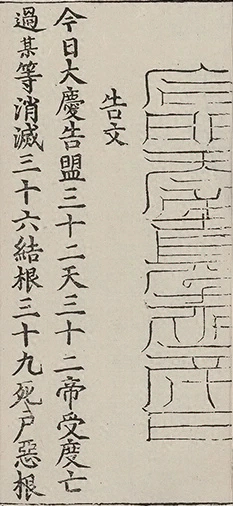 告文
今日大慶告盟三十二天三十二帝受度亡
過某等消滅三十六結根三十九死戶惡根